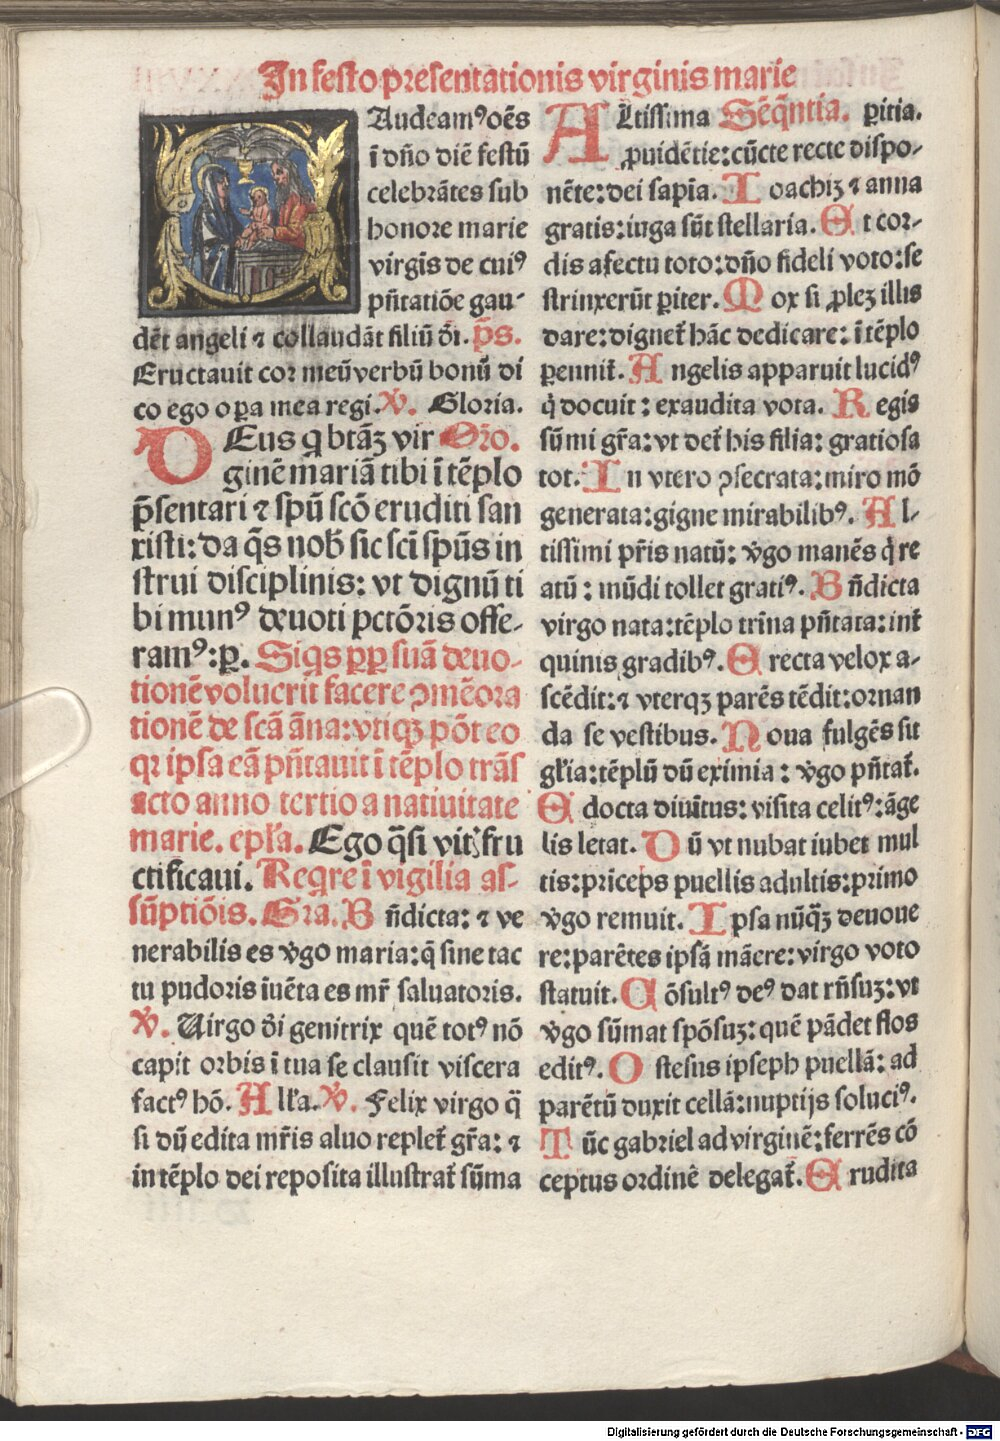 In festo presentationis virginis marie
GAudeamꝰ oēs
ī dño diē festū
celebrātes sub
honore marie
virgīs de cuiꝰ
pñtatiōe gau-
dēt angeli ⁊ collaudāt filiū ďi. p̄s.
Eructauit cor meū verbū bonū di
co ego oꝑa mea regi. V̄. Gloria.
DEus q btāʒ vir Orō.
ginē mariā tibi ī tēplo
p̄sentari ⁊ spū scō erudiri san
xisti: da q̄s nob̄ sic scī spūs in
strui disciplinis: vt dignū ti
bi munꝰ deuoti pctōris offe-
ramꝰ: ꝑ. Siqs ꝑpꝑ suā deuo-
tionē volucrit facere ꝯmēora
tionē de scā āna: vtiqʒ pōt eo
qꝛ ipsa eā pñtauit ī tēplo trās
acto anno tertio a natiuitate
marie. epl̄a. Ego q̄si vitꝭ fru
ctificaui. Reqre ī vigilia as-
sūptiōis. Gra. Bñdicta: ⁊ ve
nerabilis es v̄go maria: q̄ sine tac
tu pudoris iuēta es mr̄ saluatoris.
V̄. Uirgo ďi genitrix quē totꝰ nō
capit orbis ī tua se clausit viscera
factꝰ hō. All'a. V̄. Felix virgo q̄
si dū edita mr̄is aluo replet̄ gr̄a: ⁊
in tēplo dei reposita illustrat̄ sūma
ALtissima Sēq̄ntia. ꝑitia.
ꝓuidētie: cūcte recte dispo-
nēte: dei sapīa. Ioachiʒ ⁊ anna
gratis: iuga sūt stellaria. Et cor-
dis afectu toto: dño fideli voto: se
strinxerūt ꝑiter. Mox si ꝓleʒ illis
dare: dignet̄ hāc dedicare: ī tēplo
ꝑennit̄. Angelis apparuit lucidꝰ
q̇ docuit: exaudita vota. Regis
sūmi gr̄a: vt det̄ his filia: gratiosa
tot. In vtero ꝯsecrata: miro mō
generata: gigne mirabilibꝰ. Al-
tissimi pr̄is natū: v̄go manēs q̇ re
atū: mūdi tollet gratiꝰ. Bñdicta
virgo nata: tēplo trīna pñtata: int̄
quinis gradibꝰ. Erecta velox a-
scēdit: ⁊ vterqʒ parēs tēdit: ornan
da se vestibus. Noua fulgēs sit
gl'ia: tēplū dū eximia: v̄go pñtat̄.
Edocta diuītus: visita celitꝰ: āge
lis letat. Dū vt nubat iubet mul
tis: prīceps puellis adultis: primo
v̄go remuit. Ipsa nūq̄ʒ deuoue
re: parētes ipsā māere: virgo voto
statuit. Cōsultꝰ deꝰ dat rñsuʒ: vt
v̄go sūmat spōsuʒ: quē pādet flos
editꝰ. Ostēsus ipseph puellā: ad
parētū duxit cellā: nuptijs soluciꝰ.
Tūc gabriel ad virginē: ferrēs cō
ceptus ordinē delegat̄. Erudita
Digitalisierung gefördert durch die Deutsche Forschungsgemeinschaft - DFG